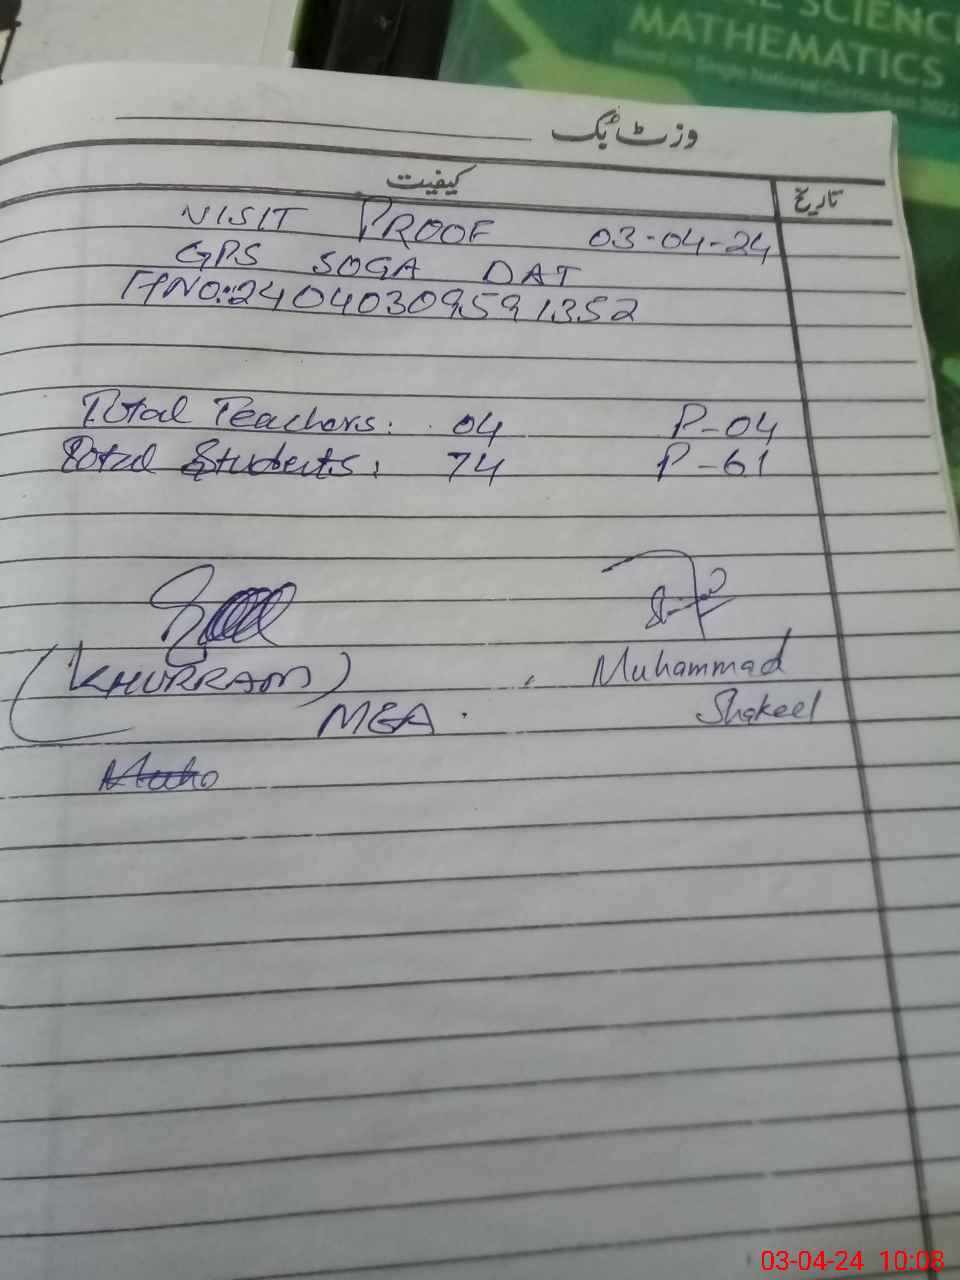 SCIENC
MATHEMATICS
Based on Single National Curriculum 202
وزٹ بُک
کیفیت تاریخ
VISIT PROOF 03-04-24
GPS SOGA DAT
24040309591352
Total Teachers: 04 P-04
Total Students: 74 P-61
(KHURRAM) Muhammad
MEA. Shakeel
03-04-24 10:08